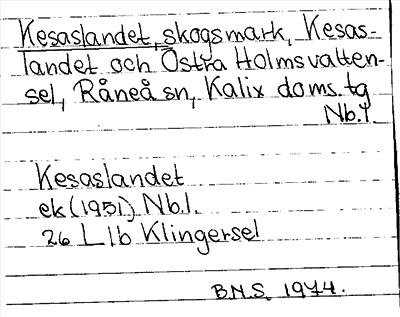 Kesaslandet, skogsmark, Kesas-
landet och Östra Holmsvatten-
sel, Råneå sn, Kalix doms.tg
Nb.l.
Kesaslandet
ek (1951) Nb.l.
26 L lb Klingersel
B.N.S. 1974.